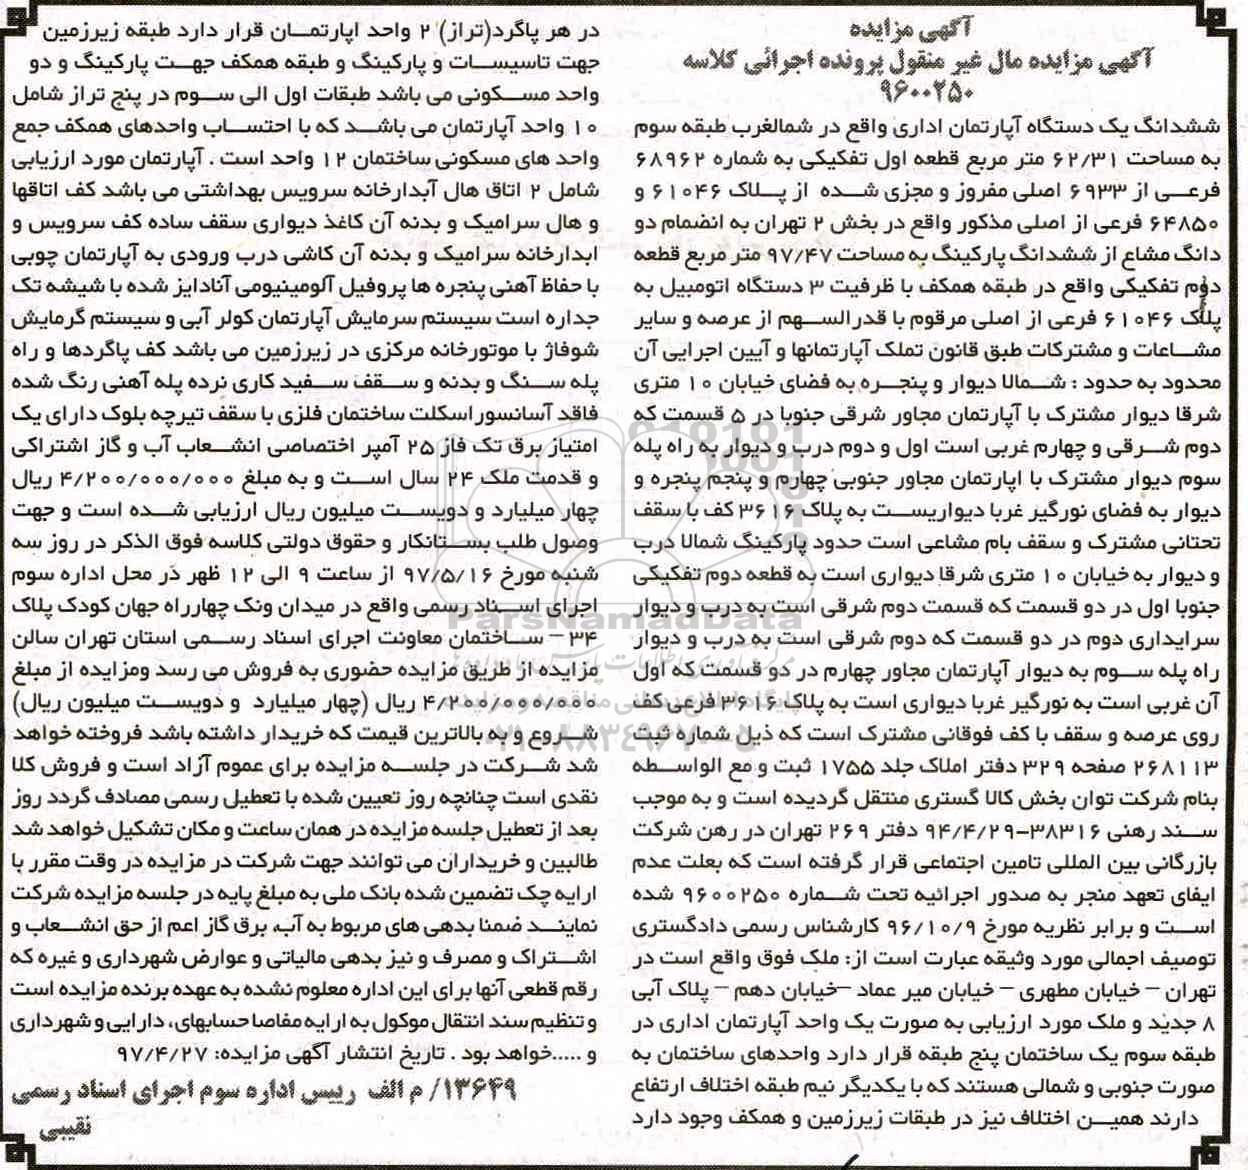 آگهی مزایده
آگهی مزایده مال غیر منقول پرونده اجرائی کلاسه
۹۶۰۰۲۵۰
ششدانگ یک دستگاه آپارتمان اداری واقع در شمالغرب طبقه سوم
به مساحت ۶۲/۳۱ متر مربع قطعه اول تفکیکی به شماره ۶۸۹۶۲
فرعـی از ۶۹۳۳ اصلی مفروز و مجزی شـده از پـلاک ۶۱۰۴۶ و
۶۴۸۵۰ فرعی از اصلی مذکور واقع در بخش ۲ تهران به انضمام دو
دانگ مشاع از ششدانگ پارکینگ به مساحت ۹۷/۴۷ متر مربع قطعه
دوم تفکیکی واقع در طبقه همکف با ظرفیت ۳ دستگاه اتومبیل به
پلاک ۶۱۰۴۶ فرعی از اصلی مرقوم با قدرالسـهم از عرصه و سایر
مشـاعات و مشترکات طبق قانون تملک آپارتمانها و آیین اجرایی آن
محدود به حدود : شـمالا دیوار و پنجـره به فضای خیابان ۱۰ متری
شرقا دیوار مشترک با آپارتمان مجاور شرقی جنوبا در ۵ قسمت که
دوم شـرقی و چهارم غربی است اول و دوم درب و دیوار به راه پله
سوم دیوار مشترک با اپارتمان مجاور جنوبی چهارم و پنجم پنجره و
دیوار به فضای نورگیر غربا دیواریسـت به پلاک ۳۶۱۶ کف با سقف
تحتانی مشترک و سقف بام مشاعی است حدود پارکینگ شمالا درب
و دیوار به خیابان ۱۰ متری شرقا دیواری است به قطعه دوم تفکیکی
جنوبا اول در دو قسمت که قسمت دوم شرقی است به درب و دیوار
سرایداری دوم در دو قسمت که دوم شرقی است به درب و دیوار
راه پله سـوم به دیوار آپارتمان مجاور چهارم در دو قسمت که اول
آن غربی است به نورگیر غربا دیواری است به پلاک ۳۶۱۶ فرعی کف
روی عرصه و سقف با کف فوقانی مشترک است که ذیل شماره ثبت
۲۶۸۱۱۳ صفحه ۳۲۹ دفتر املاک جلد ۱۷۵۵ ثبت و مع الواسـطه
بنام شرکت توان بخش کالا گستری منتقل گردیده است و به موجب
سـند رهنی ۳۸۳۱۶-۹۴/۴/۲۹ دفتر ۲۶۹ تهران در رهن شرکت
بازرگانی بین المللی تامین اجتماعی قرار گرفته است که بعلت عدم
ایفای تعهد منجر به صدور اجرائیه تحت شـماره ۹۶۰۰۲۵۰ شده
اسـت و برابر نظریه مورخ ۹۶/۱۰/۹ کارشناس رسمی دادگستری
توصیف اجمالی مورد وثیقه عبارت است از: ملک فوق واقع است در
تهران – خیابان مطهری – خیابان میر عماد –خیابان دهم – پلاک آبی
۸ جدید و ملک مورد ارزیابی به صورت یک واحد آپارتمان اداری در
طبقه سوم یک ساختمان پنج طبقه قرار دارد واحدهای ساختمان به
صورت جنوبی و شمالی هستند که با یکدیگر نیم طبقه اختلاف ارتفاع
دارند همیـن اختلاف نیز در طبقات زیرزمین و همکف وجود دارد
در هر پاگرد(تراز) ۲ واحد اپارتمـان قرار دارد طبقه زیرزمین
جهت تاسیسـات و پارکینگ و طبقه همکف جهـت پارکینگ و دو
واحد مسـکونی می باشد طبقات اول الی سـوم در پنج تراز شامل
۱۰ واحد آپارتمان می باشـد که با احتسـاب واحدهای همکف جمع
واحد های مسکونی ساختمان ۱۲ واحد است . آپارتمان مورد ارزیابی
شامل ۲ اتاق هال آبدارخانه سرویس بهداشتی می باشد کف اتاقها
و هال سرامیک و بدنه آن کاغذ دیواری سقف ساده کف سرویس و
ابدارخانه سرامیک و بدنه آن کاشی درب ورودی به آپارتمان چوبی
با حفاظ آهنی پنجره ها پروفیل آلومینیومی آنادایز شده با شیشه تک
جداره است سیستم سرمایش آپارتمان کولر آبی و سیستم گرمایش
شوفاژ با موتورخانه مرکزی در زیرزمین می باشد کف پاگردها و راه
پله سـنگ و بدنه و سـقف سـفید کاری نرده پله آهنی رنگ شده
فاقد آسانسور اسکلت ساختمان فلزی با سقف تیرچه بلوک دارای یک
امتیاز برق تک فاز ۲۵ آمپر اختصاصی انشـعاب آب و گاز اشتراکی
و قدمت ملک ۲۴ سال اسـت و به مبلغ ۴/۲۰۰/۰۰۰/۰۰۰ ریال
چهار میلیارد و دویسـت میلیون ریال ارزیابی شـده است و جهت
وصول طلب بسـتانکار و حقوق دولتی کلاسه فوق الذکر در روز سه
شنبه مورخ ۹۷/۵/۱۶ از ساعت ۹ الی ۱۲ ظهر در محل اداره سوم
اجرای اسـناد رسمی واقع در میدان ونک چهارراه جهان کودک پلاک
۳۴ – سـاختمان معاونت اجرای اسناد رسـمی استان تهران سالن
مزایده از طریق مزایده حضوری به فروش می رسد ومزایده از مبلغ
۴/۲۰۰/۰۰۰/۰۰۰ ریال (چهار میلیارد و دویسـت میلیون ریال)
شـروع و به بالاترین قیمت که خریدار داشته باشد فروخته خواهد
شد شـرکت در جلسـه مزایده برای عموم آزاد است و فروش کلا
نقدی است چنانچه روز تعیین شده با تعطیل رسمی مصادف گردد روز
بعد از تعطیل جلسه مزایده در همان ساعت و مکان تشکیل خواهد شد
طالبین و خریداران می توانند جهت شرکت در مزایده در وقت مقرر با
ارایه چک تضمین شده بانک ملی به مبلغ پایه در جلسه مزایده شرکت
نماینـد ضمنا بدهی های مربوط به آب، برق گاز اعم از حق انشـعاب و
اشـتراک و مصرف و نیز بدهی مالیاتی و عوارض شهرداری و غیره که
رقم قطعی آنها برای این اداره معلوم نشده به عهده برنده مزایده است
و تنظیم سند انتقال موکول به ارایه مفاصا حسابهای، دارایی و شهرداری
و .....خواهد بود . تاریخ انتشار آگهی مزایده: ۹۷/۴/۲۷
۱۳۶۴۹/ م الف رییس اداره سوم اجرای اسناد رسمی
نقیبی
ParsNamadData